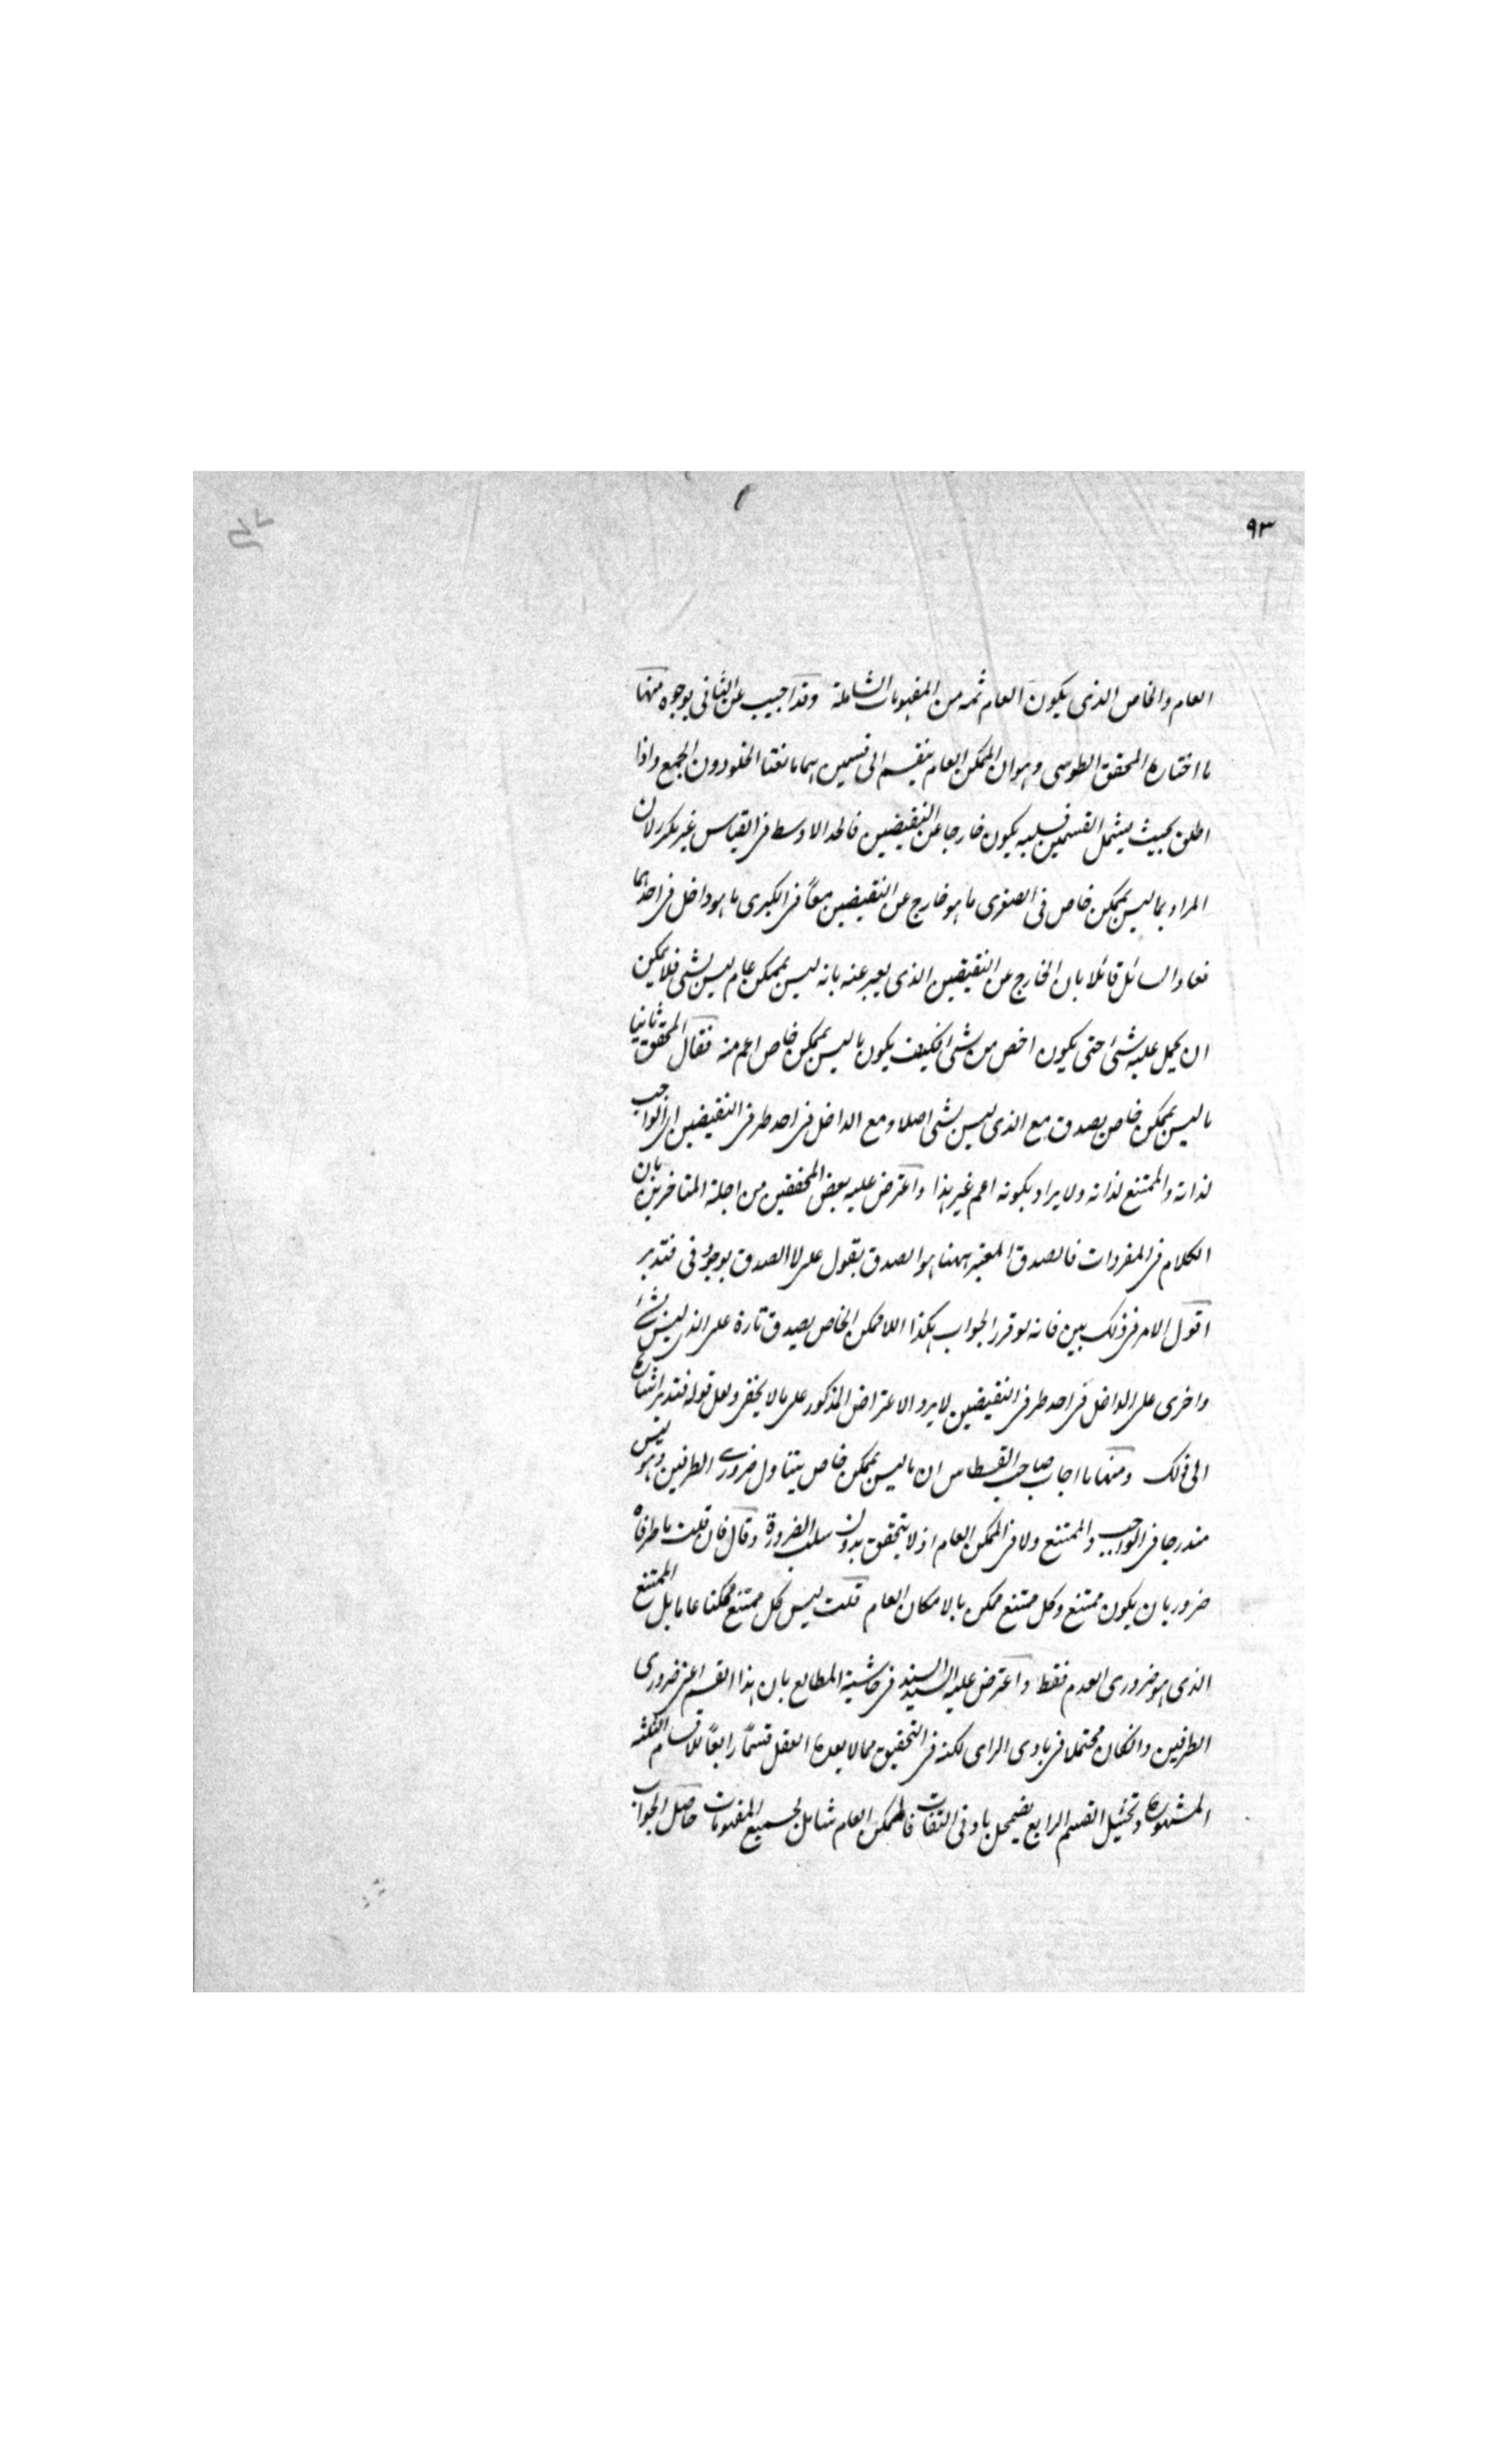 ٩٣
العام والخاص الذى يكون العام ثمه من المفهومات الشاملة وقد اجيب عن الثانى بوجوه منها
ما اختاره المحقق الطوسى وهو ان الممكن العام ينقسم الى قسمين هما مانعتا الخلو دون الجمع واذا
اطلق بحيث يشمل القسمين فسلبه يكون خارجا عن النقيضين فالحد الاوسط فى القياس غير مكرر لان
المراد بما ليس بممكن خاص فى الصغرى ما هو خارج عن النقيضين معاً فى الكبرى ما هو داخل فى احدهما
فعاد السائل قائلا بان الخارج عن النقيضين الذى يعبر عنه بانه ليس بممكن عام ليس بشئ فلا يمكن
ان يحمل عليه شئ حتى يكون اخص من شئ فكيف يكون ما ليس بممكن خاص اعم منه فقال المحقق ثانيا
ما ليس بممكن خاص يصدق مع الذى ليس بشئ اصلا ومع الداخل فى احد طرفى النقيضين اى الواجب
لذاته والممتنع لذاته ولا يراد بكونه اعم غير هذا واعترض عليه بعض المحققين من اجلة المتاخرين بان
الكلام فى المفردات فالصدق المعتبر ههنا هو الصدق بقول على لا الصدق بوجود فى فتدبر
اقول الامر فى ذلك بين فانه لو قرر الجواب هكذا اللاممكن الخاص يصدق تارة على الذى ليس بشئ
واخرى على الداخل فى احد طرفى النقيضين لا يرد الاعتراض المذكور على ما لا يخفى ولعل قوله فتدبر اشارة
الى ذلك ومنها ما اجاب صاحب القسطاس ان ما ليس بممكن خاص يتناول ضرورى الطرفين وهو ليس
مندرجا فى الواجب والممتنع ولا فى الممكن العام اذ لا يتحقق بدون سلب الضرورة وقال فان قلت ما طرفاه
ضروريان يكون ممتنع وكل ممتنع ممكن بالامكان العام قلت ليس كل ممتنع ممكنا عاما بل الممتنع
الذى هو ضرورى العدم فقط واعترض عليه السيد السند فى حاشية المطالع بان هذا القسم اعنى ضرورى
الطرفين وان كان محتملا فى بادى الراى لكنه فى التحقيق مما لا يعده العقل قسماً رابعاً للاقسام الثلثة
المشهورة وتخيل القسم الرابع يضمحل بادنى التفات فالممكن العام شامل لجميع المفهومات حاصل الجواب